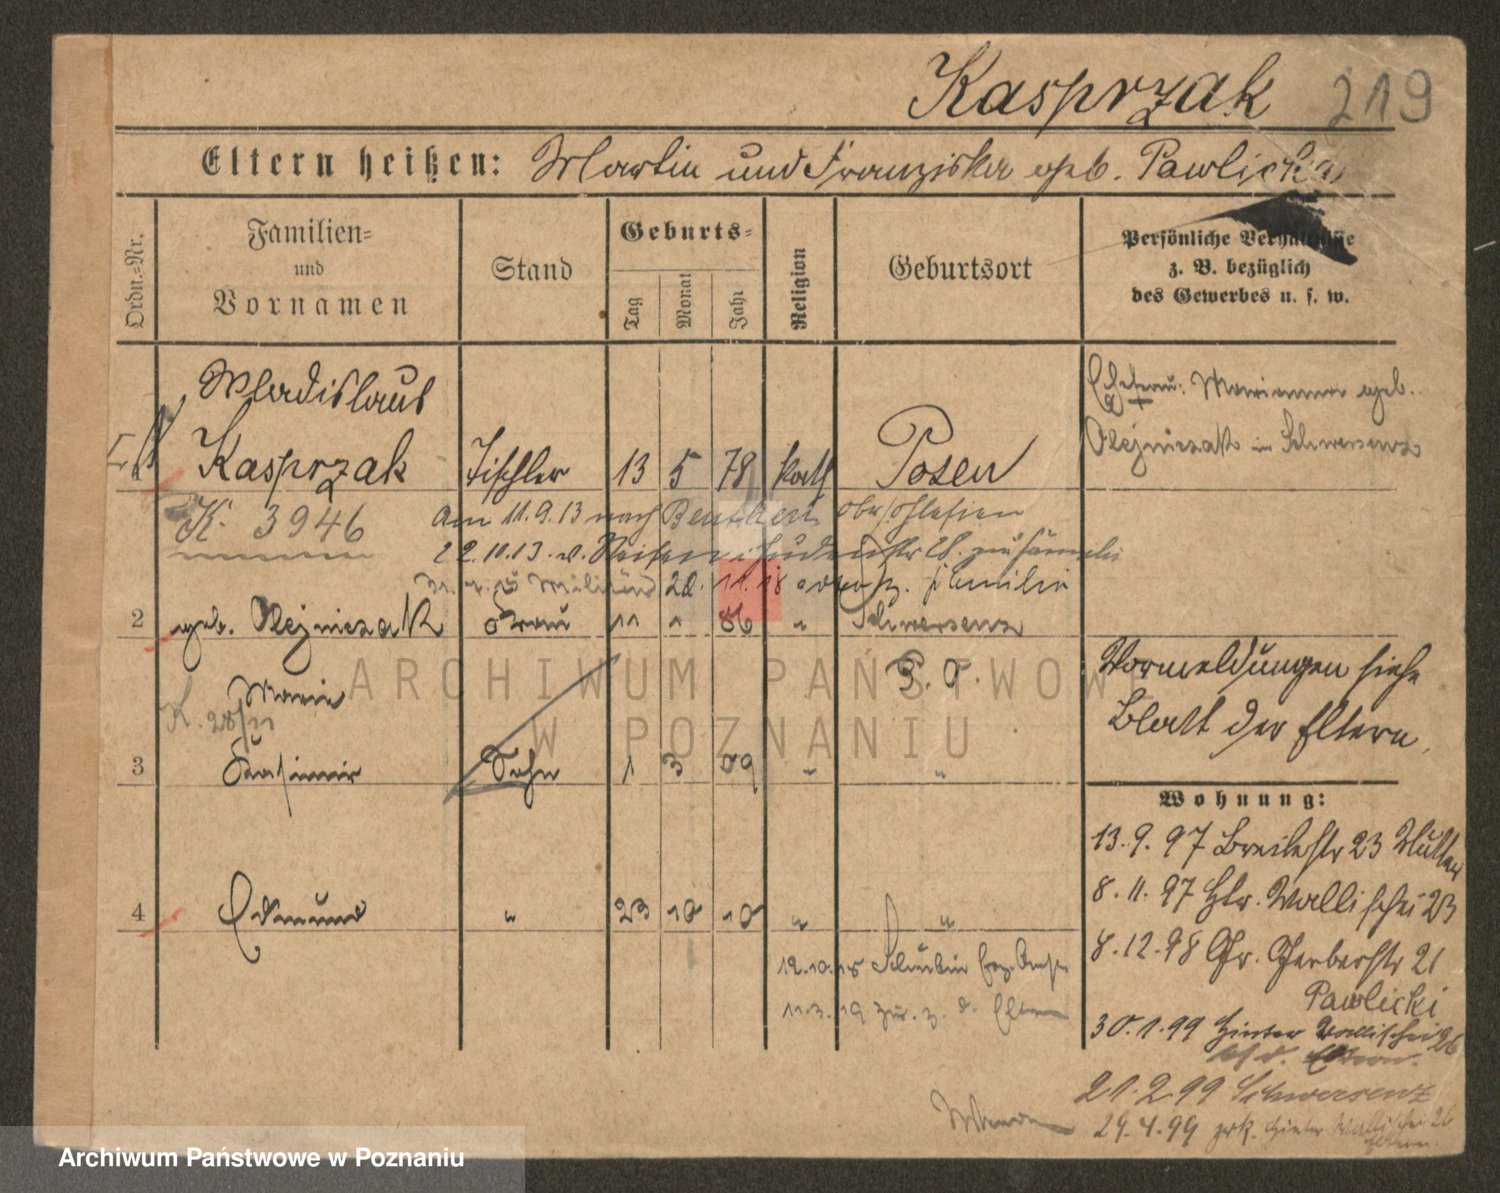 Kasprzak 219
Eltern heißen: Martin und Franziska geb. Pawlicka
Ordn.-Nr.
Familien-
und
Vornamen
Stand
Geburts-
Tag
Monat
Jahr
Religion
Geburtsort
Persönliche Verhältnisse
z. B. bezüglich
des Gewerbes u. s. w.
Wladislaus
1 Kasprzak Tischler 13 5 78 kath Posen
Ehefrau: Marianna geb.
Olejniczak in Schwersenz
K. 3946
am 11.9.13 nach Beuthen Oberschlesien
22.10.13. v.
Militär 20. 11. 18 Familie
2 geb. Olejniczak Frau 11 1 86 " Schwersenz
Marie
P. O.
K. 28/
3 Kasimir Sohn 1 3 09 " "
Vormeldungen siehe
Blatt der Eltern.
4 Edmund " 23 10 10 " "
12.10.18 Schubin
11.3.19 zur. z. d. Eltern
Wohnung:
13.9.97 Breitestr 23 Mutter
8.11.97 Htr. Wallischei 23
8.12.98 Gr. Gerberstr 21
Pawlicki
30.1.99 Hinter Wallischei 26
bei d. Eltern.
21.2.99 Schwersenz
29.4.99 zrk. Hinter Wallischei 26
Eltern.
ARCHIWUM PAŃSTWOWE
W POZNANIU
Archiwum Państwowe w Poznaniu